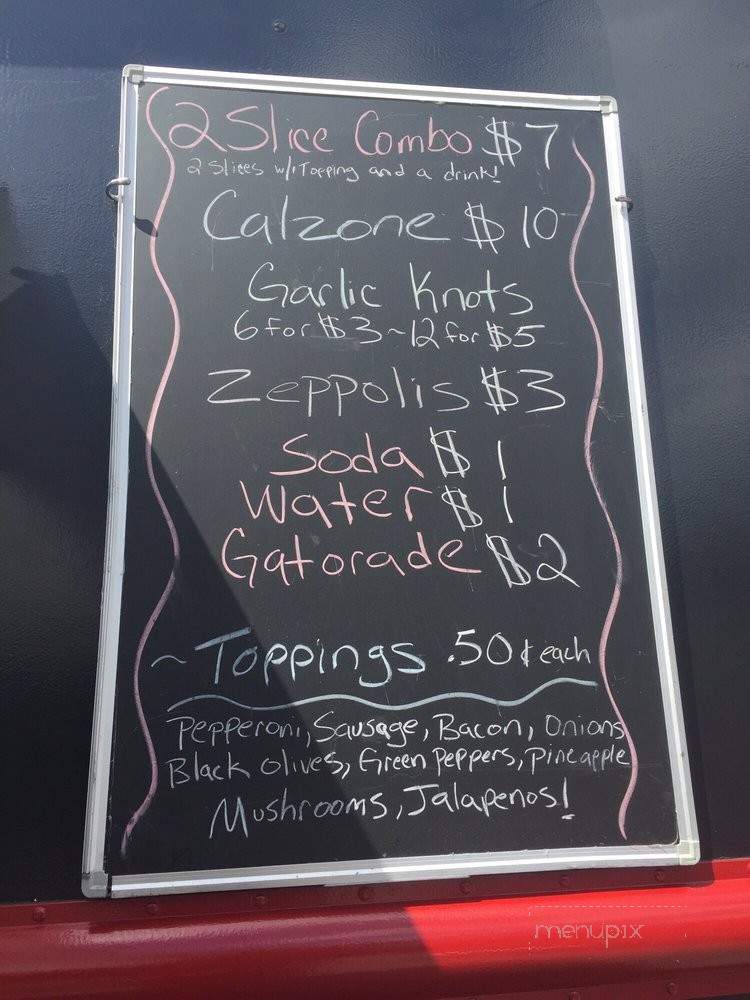 2 Slice Combo $7
2 Slices w/1 Topping and a drink!
Calzone $10
Garlic Knots
6 for $3 ~ 12 for $5
Zeppolis $3
Soda $1
Water $1
Gatorade $2
~ Toppings .50¢ each
Pepperoni, Sausage, Bacon, Onions
Black olives, Green Peppers, Pineapple
Mushrooms, Jalapenos!
menupix